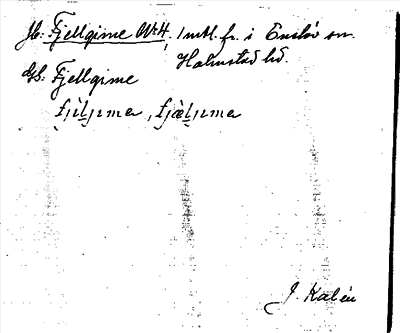 Jb: Fjellgime W:H, 1 mtl. fr. i Enslöv sn.
Halmstad hd.
Gb: Fjellgime
fjæljıma, fjæljıma
J. Kalén